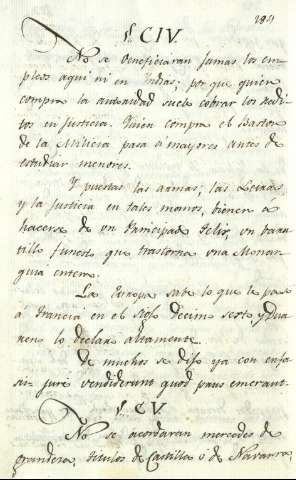 184
§ CIV.
No se beneficiaran jamas los em-
pleos aqui ni en Indias; por que quien
compra la autoridad suele cobrar los redi-
tos en justicia. Quien compra el Baston
de la Milicia pasa á mayores antes de
estudiar menores.
Y puestas las armas, las Letras,
y la Justicia en tales manos, bienen á
hacerse de un Principado feliz, un bara-
tillo funesto que trastorna una Monar-
quia entera.
La Europa sabe lo que le pasó
á Francia en el siglo decimo sesto, y Dua-
reno lo declaró altamente.
De muchos se dijo ya con enfa-
sis: jure vendiderunt quod prius emerant.
§. CV.
No se acordaran mercedes de
grandeza, titulos de Castilla ó de Navarra